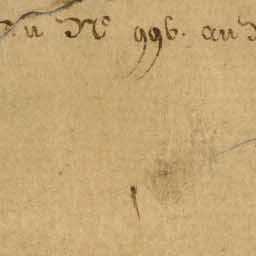 u No 996. au